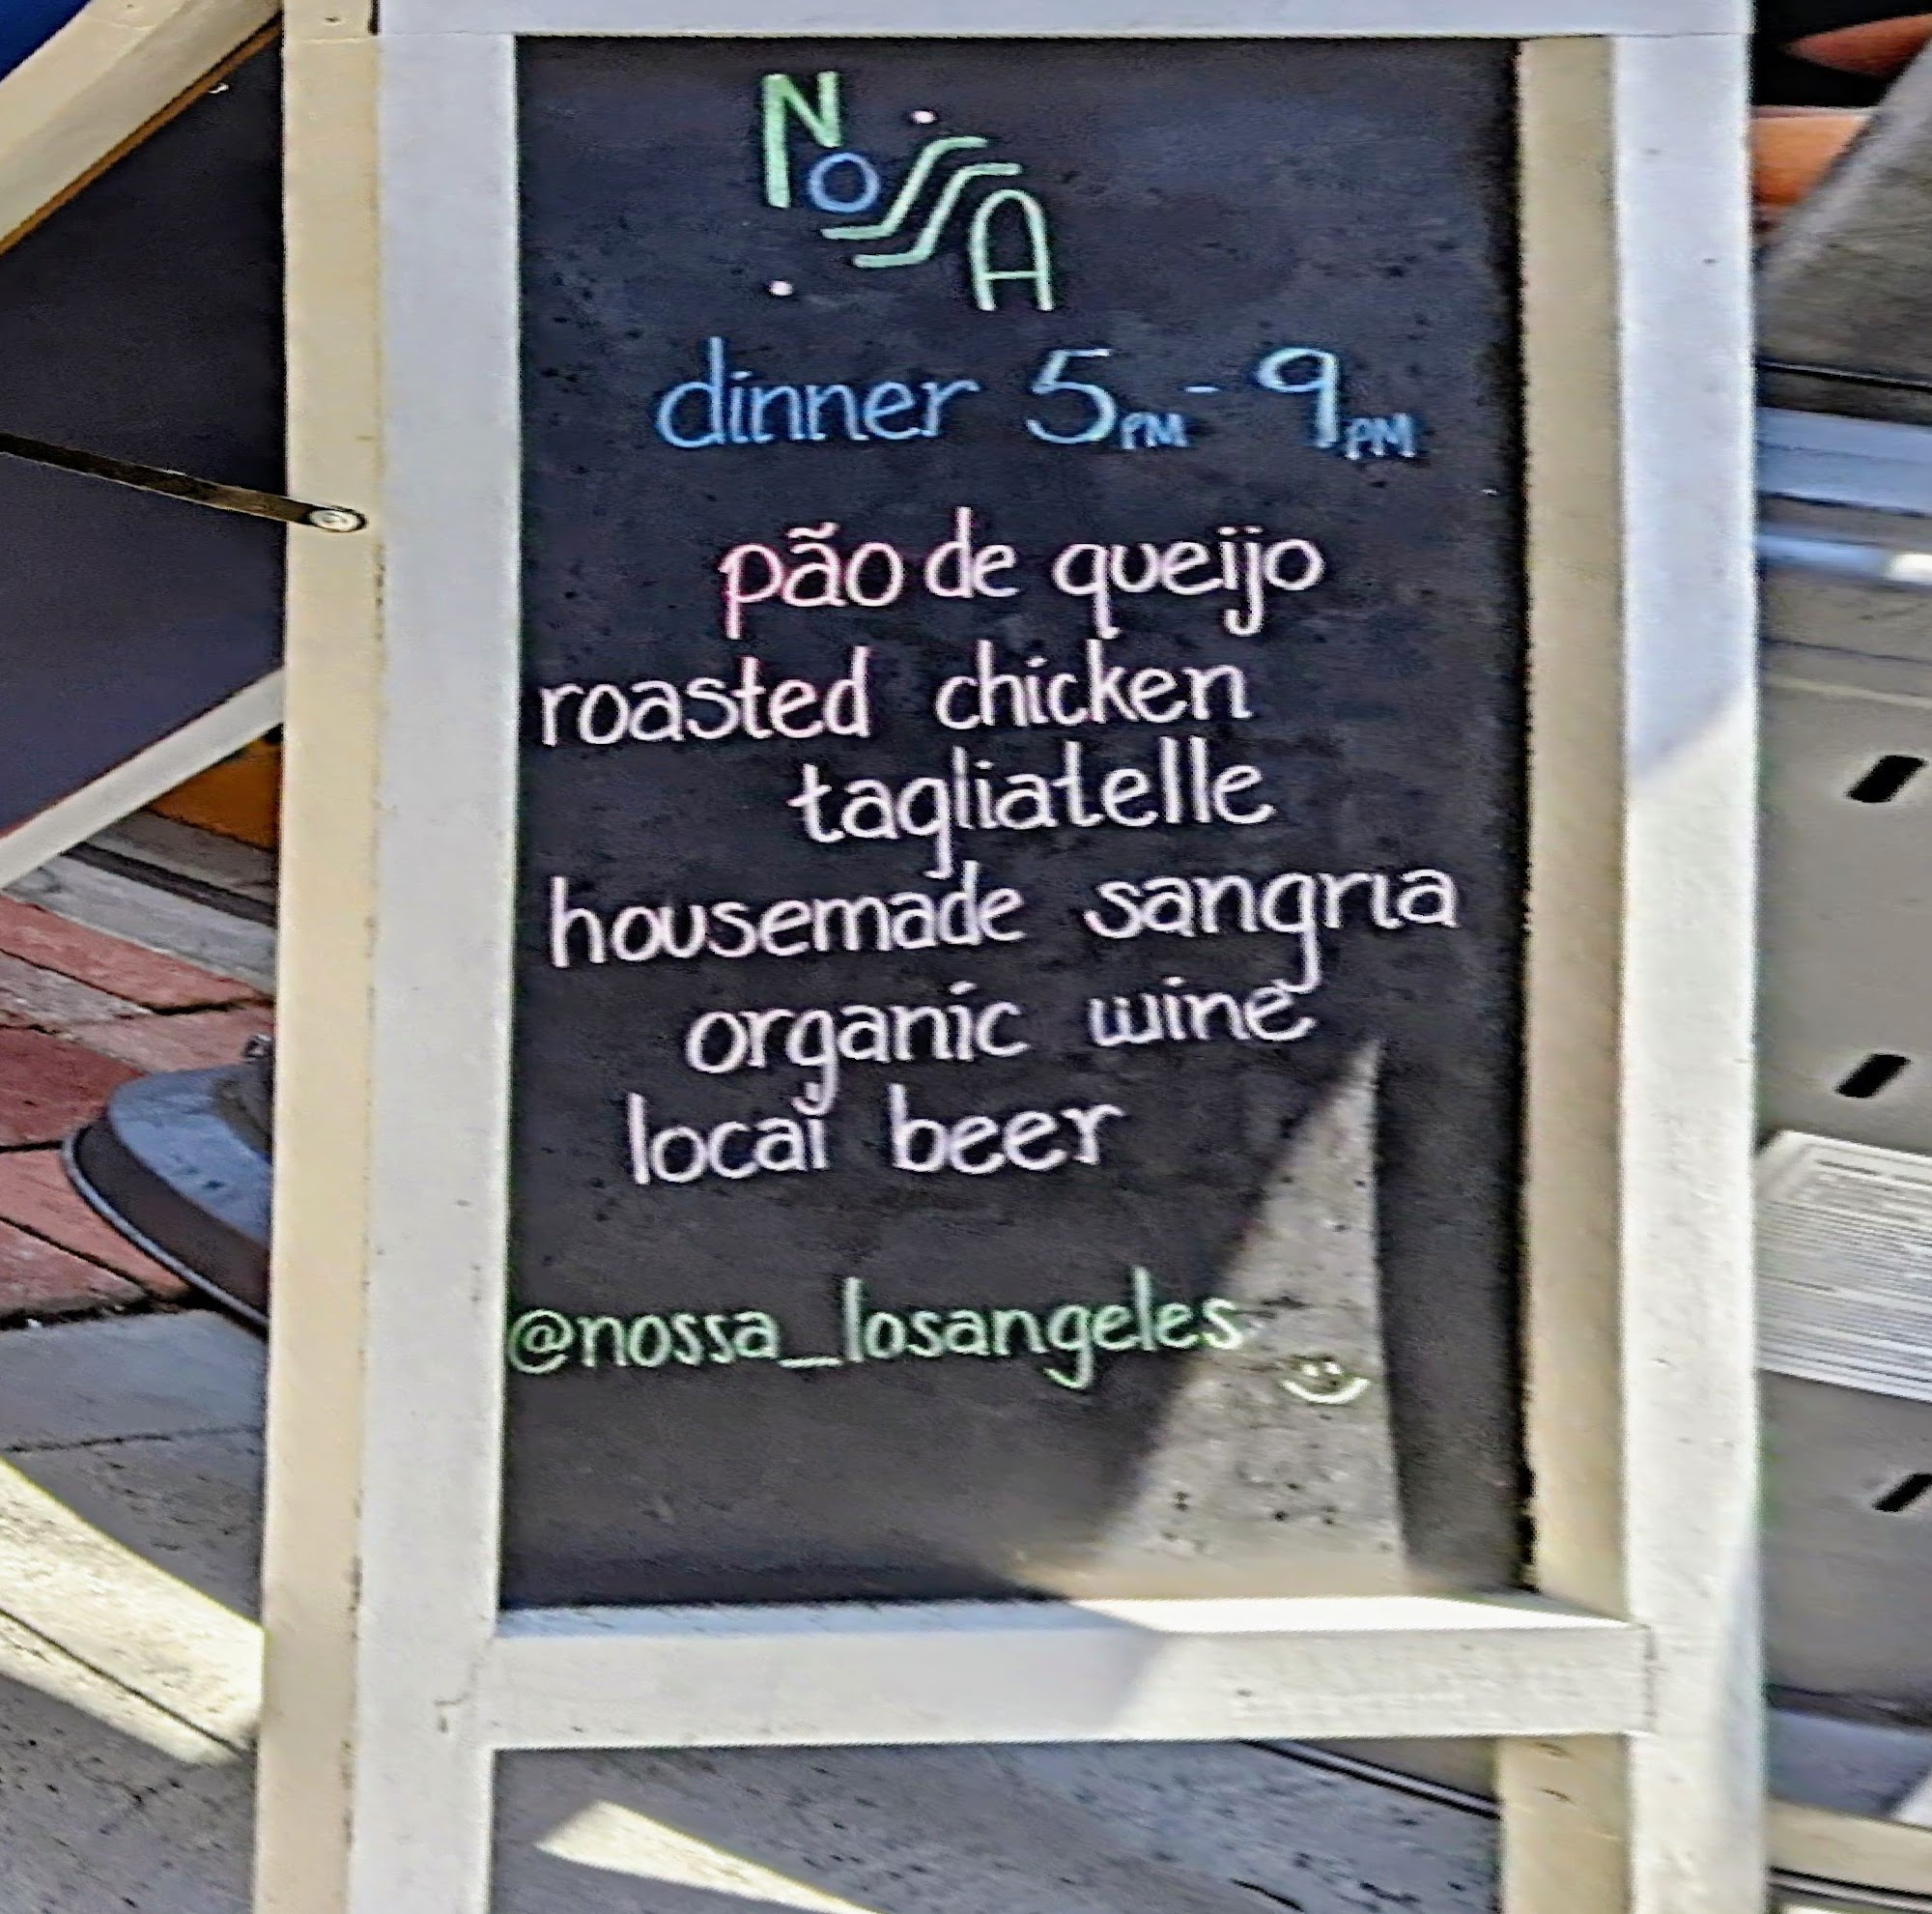 NOSSA
dinner 5PM - 9PM
pão de queijo
roasted chicken
tagliatelle
housemade sangria
organic wine
local beer
@nossa_losangeles